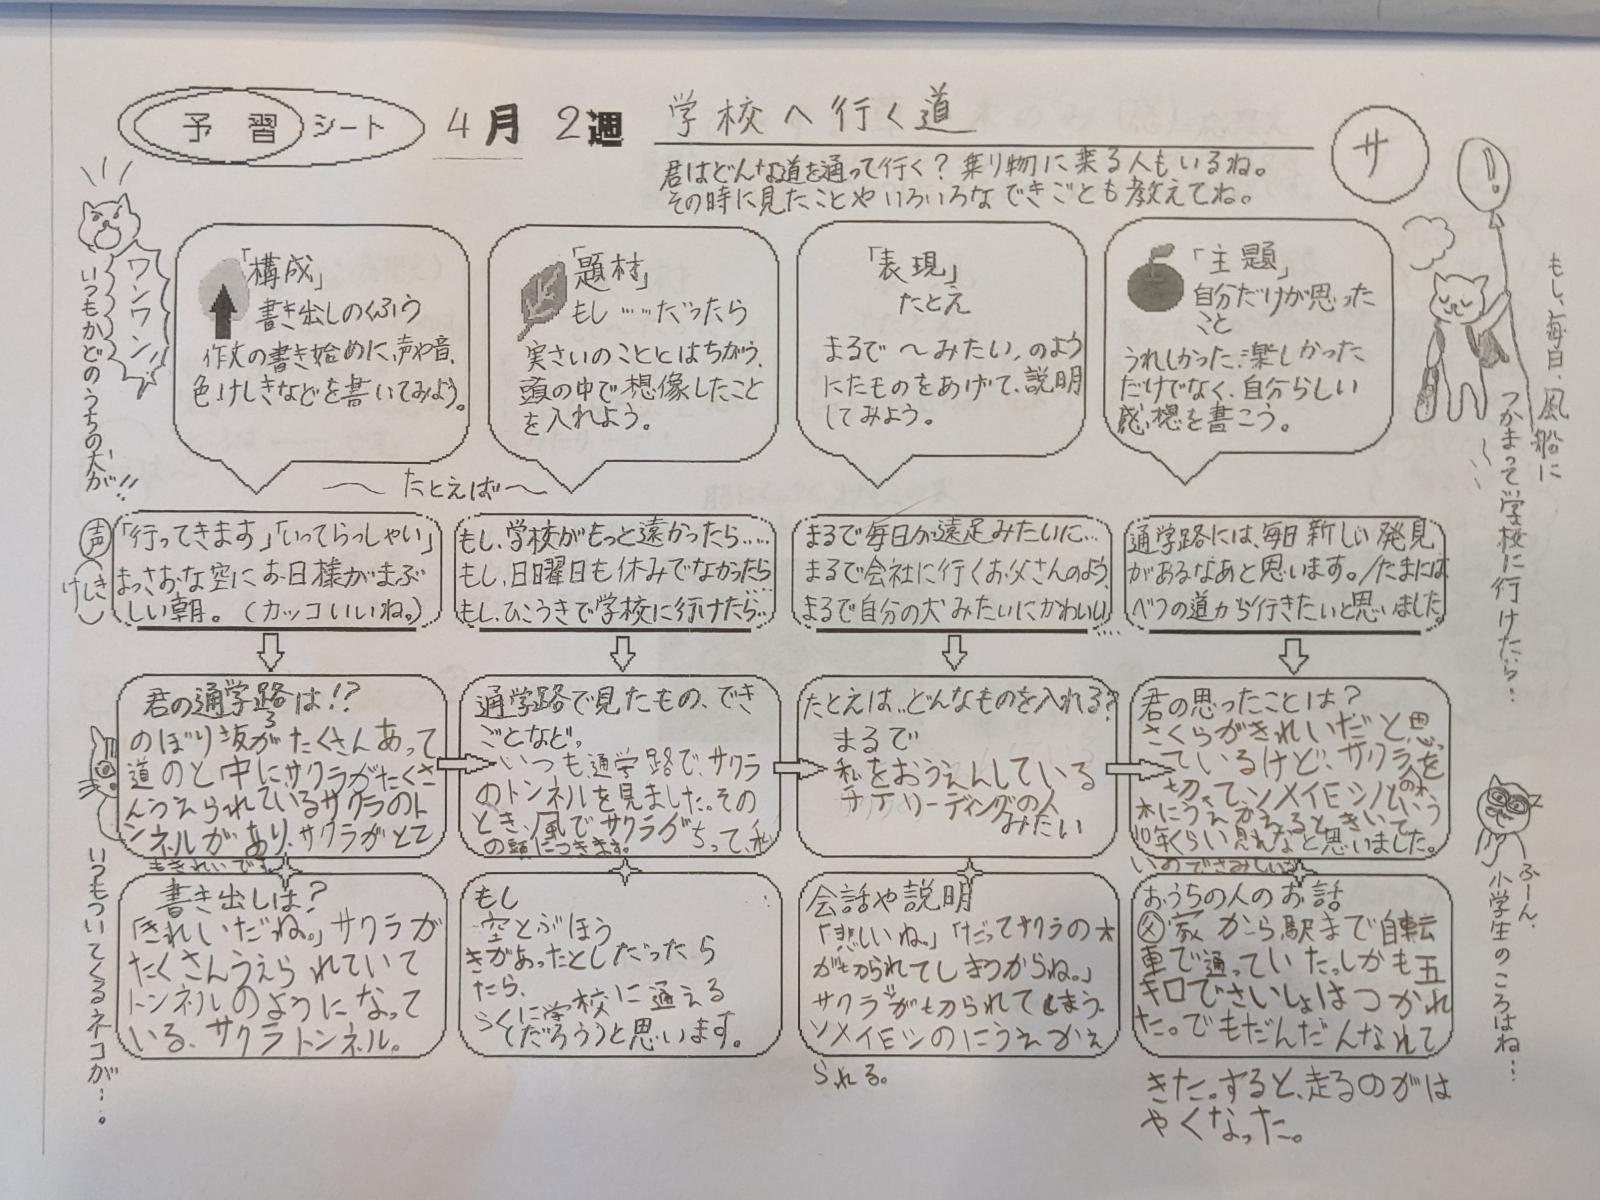 予習シート 4月 2週 学校へ行く道
サ
君はどんな道を通って行く？乗り物に乗る人もいるね。
その時に見たことやいろいろなできごとも教えてね。
ワンワン!
いつもかどのうちの犬が!!
「構成」
書き出しのくふう
作文の書き始めに、声や音、
色、けしきなどを書いてみよう。
「題材」
もし……だったら
実さいのこととはちがう、
頭の中で想像したこと
を入れよう。
「表現」
たとえ
まるで〜みたい。のよう
にたものをあげて、説明
してみよう。
「主題」
自分だけが思った
こと
うれしかった、楽しかった
だけでなく、自分らしい
感想を書こう。
!
もし、毎日、風船に
つかまって学校に行けたら…
〜たとえば〜
声
けしき
「行ってきます」「いってらっしゃい」
まっさおな空にお日様がまぶ
しい朝。（カッコいいね。）
もし、学校がもっと遠かったら……
もし、日曜日も休みでなかったら……
もし、ひこうきで学校に行けたら…
まるで毎日が遠足みたいに…
まるで会社に行くお父さんのよう、
まるで自分の犬みたいにかわいい…
通学路には、毎日新しい発見
があるなあと思います。/たまには
べつの道から行きたいと思いました。
君の通学路は!?
のぼり坂がたくさんあって
道のと中にサクラがたくさ
んうえられているサクラのト
ンネルがあり、サクラがとて
もきれいです。
通学路で見たもの、でき
ごとなど。
いつも通学路で、サクラ
のトンネルを見ました。その
とき、風でサクラがちって、私
の頭につきます。
たとえは…どんなものを入れる？
まるで
私をおうえんしている
チアリーディングの人
みたい
君の思ったことは？
さくらがきれいだと思っ
ているけど、サクラの木を
切ってソメイヨシノという
木にうえかえるときいて、
10年くらい見れないのでさみしいなと思いました。
いつもついてくるネコが…。
書き出しは？
「きれいだね。」サクラが
たくさんうえられていて
トンネルのようになって
いる、サクラトンネル。
もし
空とぶほう
きがあったとしだったら
たら、
らくに学校に通える
（だろう）うと思います。
会話や説明
「悲しいね。」「だってサクラの木
が切られてしまうからね。」
サクラが切られてしまう。
ソメイヨシノにうえかえ
られる。
おうちの人のお話
父 家から駅まで自転
車で通っていた。しかも五
キロでさいしょはつかれ
た。でもだんだんなれて
きた。すると、走るのがは
やくなった。
ふーん、
小学生のころはね…